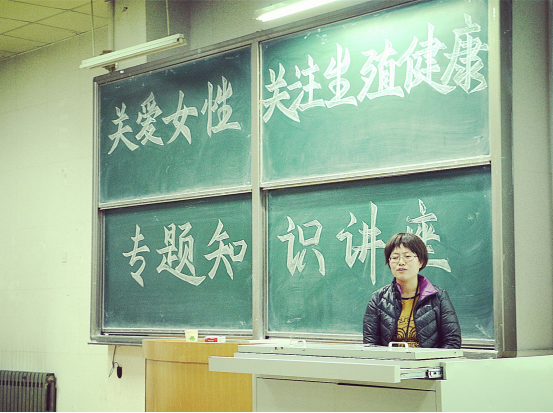 关爱女性 关注生殖健康
专题知识讲座